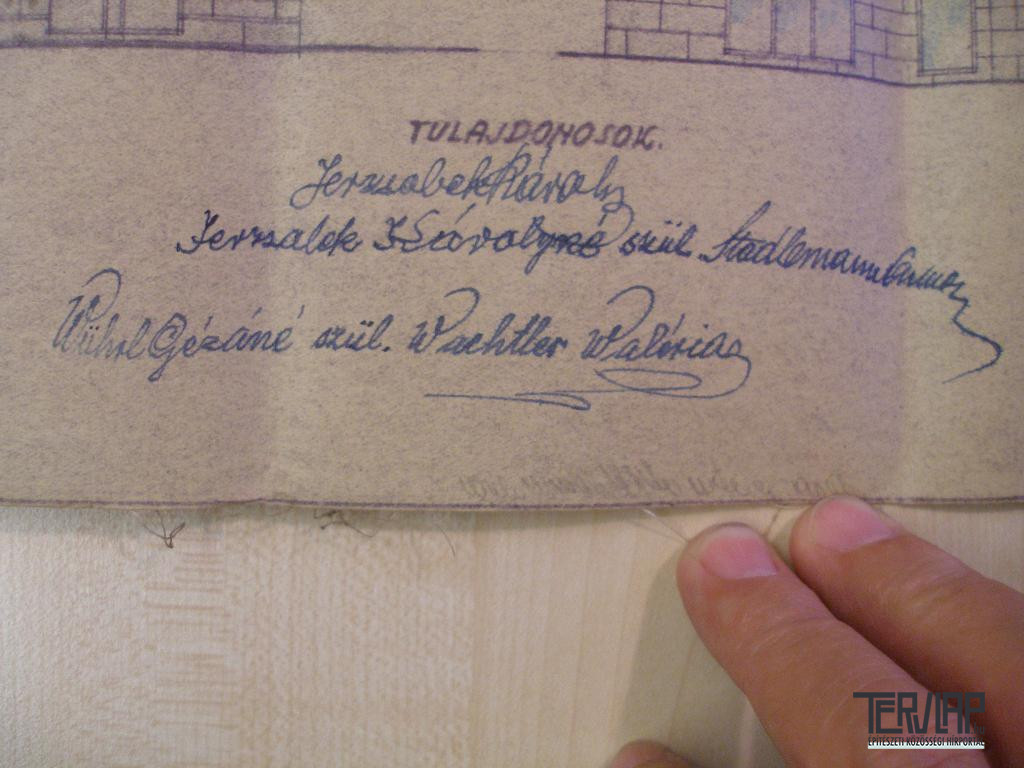 TULAJDONOSOK.
Jerzsabek Károly
Jerzsalek Károlyné szül. Stadlemann
Wührl Gézáné szül. Wachtler Waléria
TERVLAP
ÉPÍTÉSZETI KÖZÖSSÉGI HÍRPORTÁL